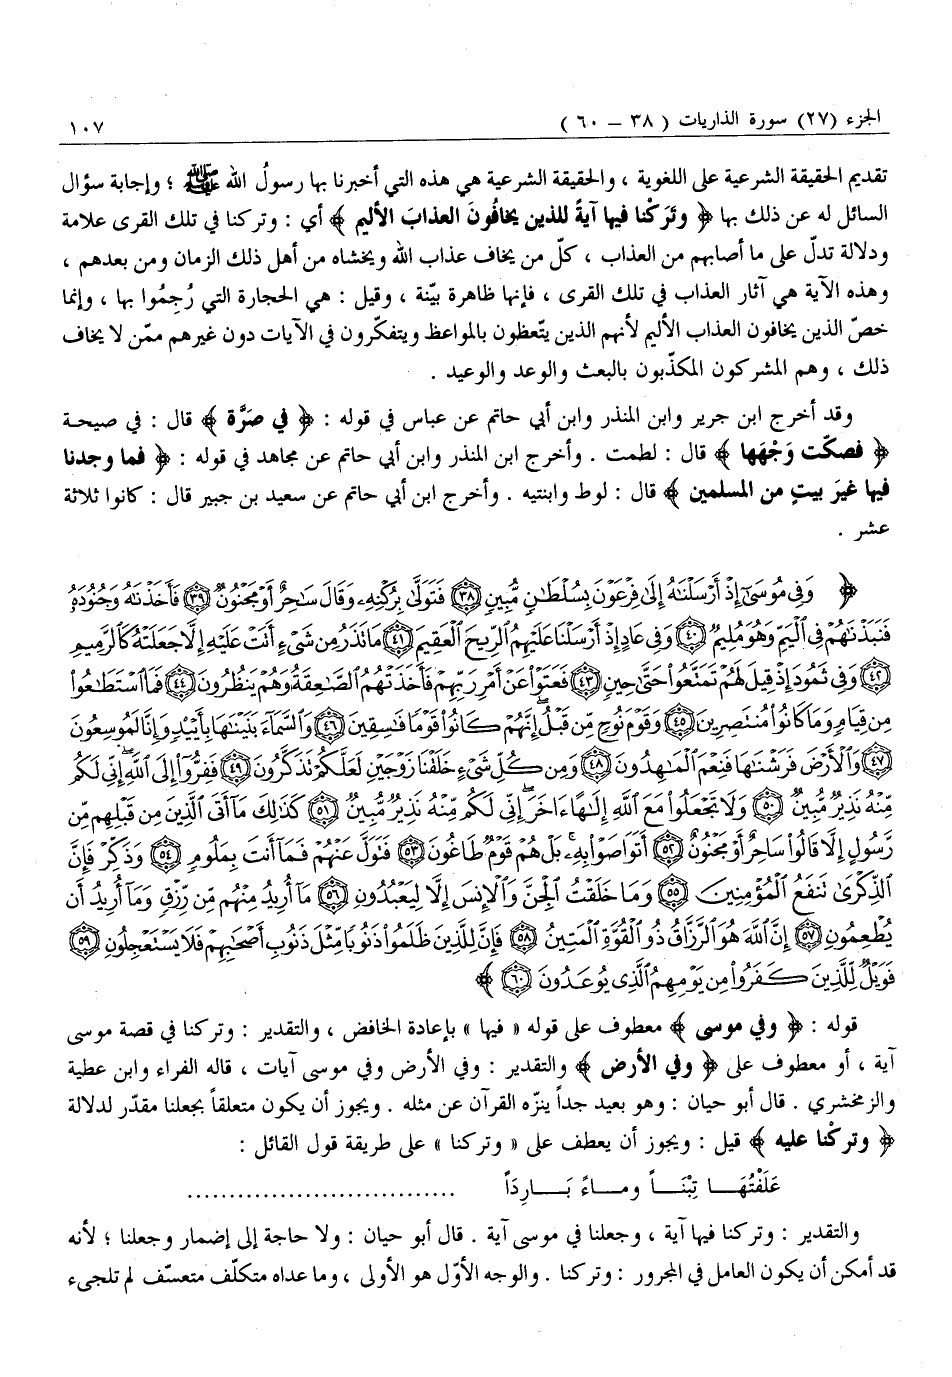 الجزء (٢٧) سورة الذاريات ( ٣٨ – ٦٠ ) ١٠٧
تقديم الحقيقة الشرعية على اللغوية ، والحقيقة الشرعية هي هذه التي أخبرنا بها رسولُ الله ﷺ ؛ وإجابة سؤال
السائل له عن ذلك بها ﴿ وتَرَكْنا فيها آيةً للذين يخافُونَ العذابَ الأليم ﴾ أي : وتركنا في تلك القرى علامة
ودلالة تدلّ على ما أصابهم من العذاب ، كلّ من يخاف عذاب الله ويخشاه من أهل ذلك الزمان ومن بعدهم ،
وهذه الآية هي آثار العذاب في تلك القرى ، فإنها ظاهرة بيّنة ، وقيل : هي الحجارة التي رُجِمُوا بها ، وإنما
خصّ الذين يخافون العذاب الأليم لأنهم الذين يتّعظون بالمواعظ ويتفكّرون في الآيات دون غيرهم ممّن لا يخاف
ذلك ، وهم المشركون المكذّبون بالبعث والوعد والوعيد .
وقد أخرج ابن جرير وابن المنذر وابن أبي حاتم عن عباس في قوله : ﴿ في صَرَّة ﴾ قال : في صيحة
﴿ فصكّت وَجْهَها ﴾ قال : لطمت . وأخرج ابن المنذر وابن أبي حاتم عن مجاهد في قوله : ﴿ فما وجدنا
فيها غيرَ بيتٍ من المسلمين ﴾ قال : لوط وابنتيه . وأخرج ابن أبي حاتم عن سعيد بن جبير قال : كانوا ثلاثة
عشر .
﴿ وَفِي مُوسَىٰٓ إِذْ أَرْسَلْنَٰهُ إِلَىٰ فِرْعَوْنَ بِسُلْطَٰنٍ مُّبِينٍ ٣٨ فَتَوَلَّىٰ بِرُكْنِهِۦ وَقَالَ سَٰحِرٌ أَوْ مَجْنُونٌ ٣٩ فَأَخَذْنَٰهُ وَجُنُودَهُۥ
فَنَبَذْنَٰهُمْ فِي ٱلْيَمِّ وَهُوَ مُلِيمٌ ٤٠ وَفِي عَادٍ إِذْ أَرْسَلْنَا عَلَيْهِمُ ٱلرِّيحَ ٱلْعَقِيمَ ٤١ مَا تَذَرُ مِن شَيْءٍ أَتَتْ عَلَيْهِ إِلَّا جَعَلَتْهُ كَٱلرَّمِيمِ
٤٢ وَفِي ثَمُودَ إِذْ قِيلَ لَهُمْ تَمَتَّعُوا۟ حَتَّىٰ حِينٍ ٤٣ فَعَتَوْا۟ عَنْ أَمْرِ رَبِّهِمْ فَأَخَذَتْهُمُ ٱلصَّٰعِقَةُ وَهُمْ يَنظُرُونَ ٤٤ فَمَا ٱسْتَطَٰعُوا۟
مِن قِيَامٍ وَمَا كَانُوا۟ مُنتَصِرِينَ ٤٥ وَقَوْمَ نُوحٍ مِّن قَبْلُ إِنَّهُمْ كَانُوا۟ قَوْمًا فَٰسِقِينَ ٤٦ وَٱلسَّمَآءَ بَنَيْنَٰهَا بِأَيْيْدٍ وَإِنَّا لَمُوسِعُونَ
٤٧ وَٱلْأَرْضَ فَرَشْنَٰهَا فَنِعْمَ ٱلْمَٰهِدُونَ ٤٨ وَمِن كُلِّ شَيْءٍ خَلَقْنَا زَوْجَيْنِ لَعَلَّكُمْ تَذَكَّرُونَ ٤٩ فَفِرُّوٓا۟ إِلَى ٱللَّهِ إِنِّي لَكُم
مِّنْهُ نَذِيرٌ مُّبِينٌ ٥٠ وَلَا تَجْعَلُوا۟ مَعَ ٱللَّهِ إِلَٰهًا ءَاخَرَ إِنِّي لَكُم مِّنْهُ نَذِيرٌ مُّبِينٌ ٥١ كَذَٰلِكَ مَآ أَتَى ٱلَّذِينَ مِن قَبْلِهِم مِّن
رَّسُولٍ إِلَّا قَالُوا۟ سَاحِرٌ أَوْ مَجْنُونٌ ٥٢ أَتَوَاصَوْا۟ بِهِۦ بَلْ هُمْ قَوْمٌ طَاغُونَ ٥٣ فَتَوَلَّ عَنْهُمْ فَمَآ أَنتَ بِمَلُومٍ ٥٤ وَذَكِّرْ فَإِنَّ
ٱلذِّكْرَىٰ تَنفَعُ ٱلْمُؤْمِنِينَ ٥٥ وَمَا خَلَقْتُ ٱلْجِنَّ وَٱلْإِنسَ إِلَّا لِيَعْبُدُونِ ٥٦ مَآ أُرِيدُ مِنْهُم مِّن رِّزْقٍ وَمَآ أُرِيدُ أَن
يُطْعِمُونِ ٥٧ إِنَّ ٱللَّهَ هُوَ ٱلرَّزَّاقُ ذُو ٱلْقُوَّةِ ٱلْمَتِينُ ٥٨ فَإِنَّ لِلَّذِينَ ظَلَمُوا۟ ذَنُوبًا مِّثْلَ ذَنُوبِ أَصْحَٰبِهِمْ فَلَا يَسْتَعْجِلُونِ ٥٩
فَوَيْلٌ لِّلَّذِينَ كَفَرُوا۟ مِن يَوْمِهِمُ ٱلَّذِي يُوعَدُونَ ٦٠ ﴾
قوله : ﴿ وفي موسى ﴾ معطوف على قوله « فيها » بإعادة الخافض ، والتقدير : وتركنا في قصة موسى
آية ، أو معطوف على ﴿ وفي الأرض ﴾ والتقدير : وفي الأرض وفي موسى آيات ، قاله الفراء وابن عطية
والزمخشري . قال أبو حيان : وهو بعيد جداً ينزّه القرآن عن مثله . ويجوز أن يكون متعلقاً بجعلنا مقدّر لدلالة
﴿ وتركْنا عليه ﴾ قيل : ويجوز أن يعطف على « وتركنا » على طريقة قول القائل :
عَلَفْتُهَــا تِبْنَــاً ومــاءً بَــارِدَاً ...............................
والتقدير : وتركنا فيها آية ، وجعلنا في موسى آية . قال أبو حيان : ولا حاجة إلى إضمار وجعلنا ؛ لأنه
قد أمكن أن يكون العامل في المجرور : وتركنا . والوجه الأوّل هو الأولى ، وما عداه متكلّف متعسّف لم تلجىء